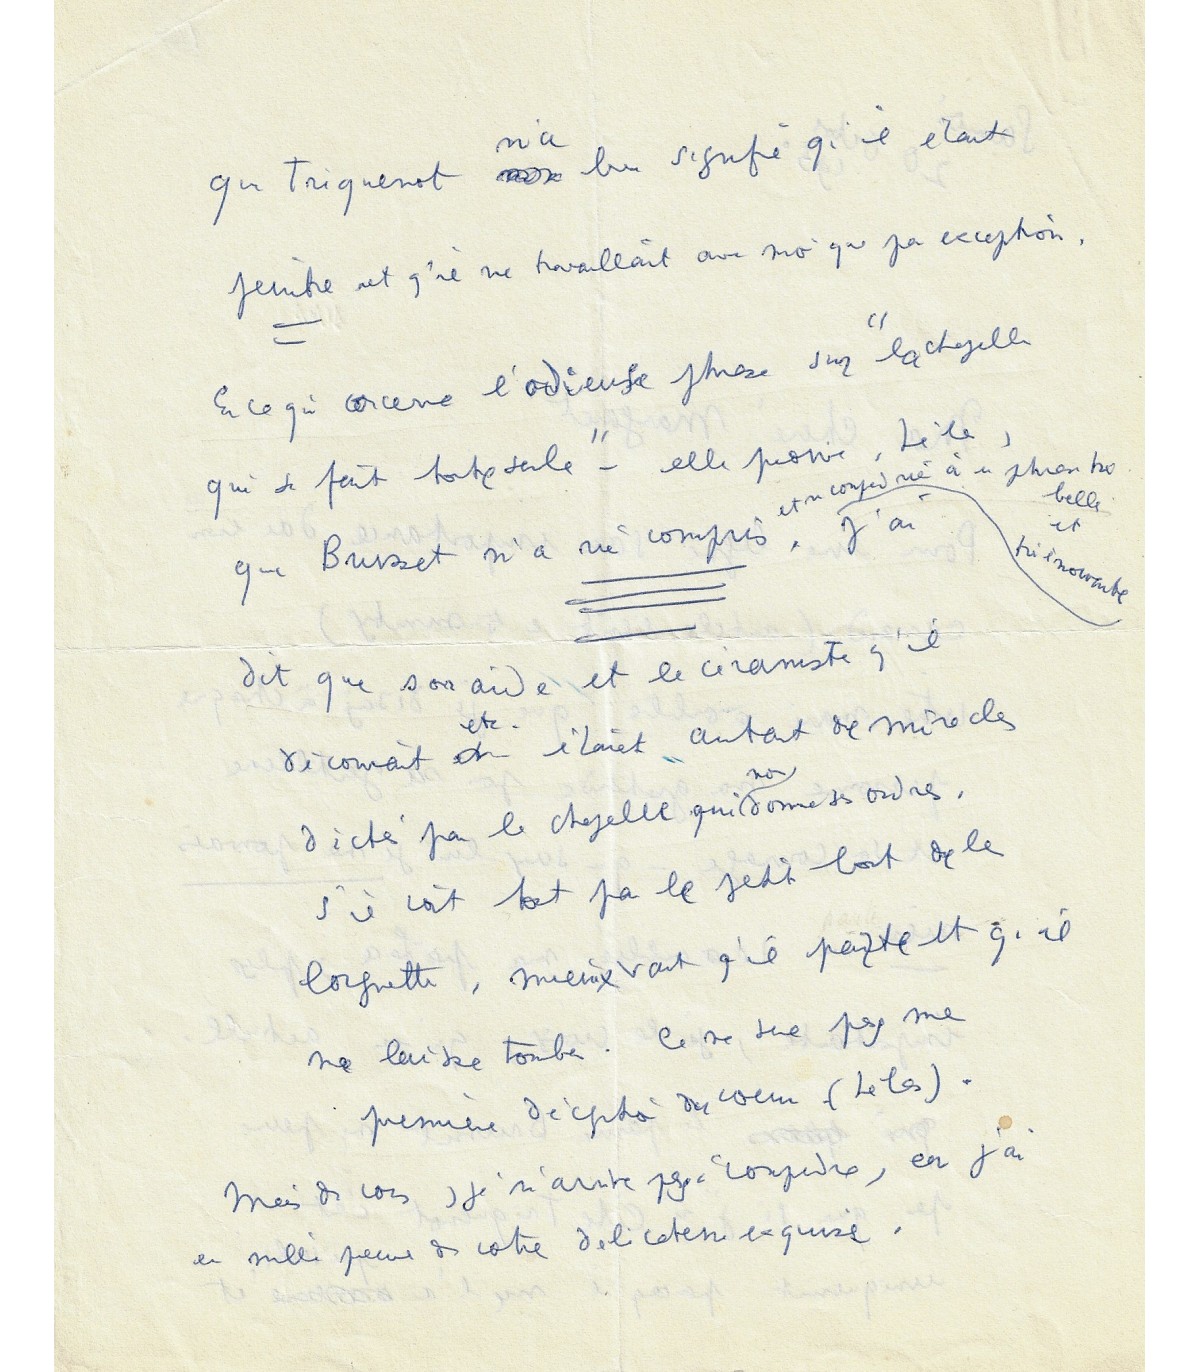 que Triquenot m'a bien signifié qu'il était
peintre et qu'il ne travaillait avec moi que par exception.
En ce qui concerne l'odieuse phrase sur "la chapelle
qui se fait toute seule" – elle prouve, hélas,
que Brusset n'a rien compris, et rien compris à une phrase très belle et très émouvante. J'ai
dit que son aide et le céramiste qu'il
découvrait etc. étaient autant de miracles
dictés par la chapelle qui nous donne ses ordres.
S'il voit tout par le petit bout de la
lorgnette, mieux vaut qu'il parte et qu'il
me laisse tomber. Ce ne sera pas ma
première déception du cœur (hélas).
Mais de vous, je n'arrive pas à comprendre, car j'ai
eu mille preuves de votre délicatesse exquise.